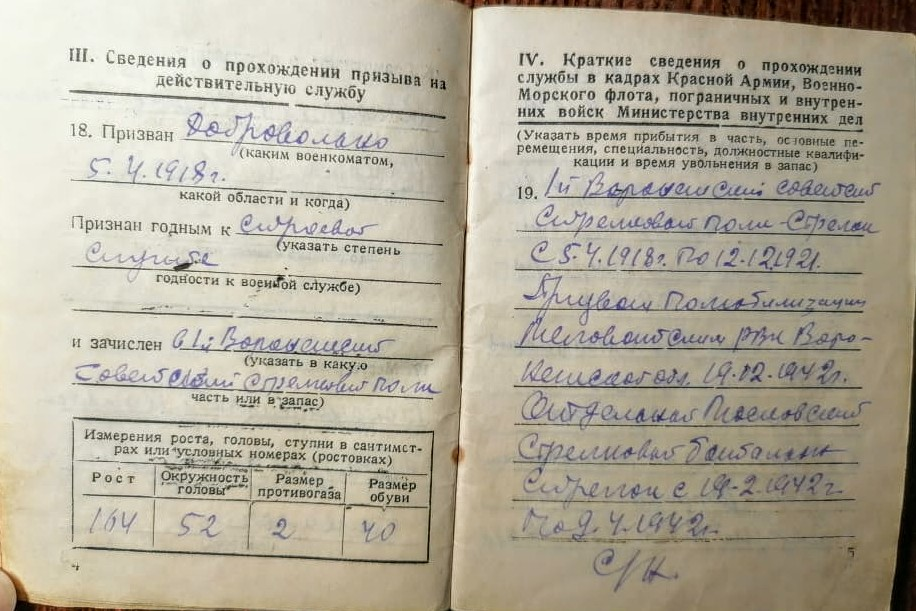 III. Сведения о прохождении призыва на
действительную службу
18. Призван Добровольно
(каким военкоматом,
5.4.1918г.
какой области и когда)
Признан годным к строевой
(указать степень
службе
годности к военной службе)
и зачислен в 1й Воронежский
(указать в какую
Советский стрелковый полк
часть или в запас)
Измерения роста, головы, ступни в сантимет-
рах или условных номерах (ростовках)
Рост Окружность головы Размер противогаза Размер обуви
164 52 2 40
4
IV. Краткие сведения о прохождении
службы в кадрах Красной Армии, Военно-
Морского флота, пограничных и внутрен-
них войск Министерства внутренних дел
(Указать время прибытия в часть, основные пе-
ремещения, специальность, должностные квалифи-
кации и время увольнения в запас)
19. 1й Воронежский советский
стрелковый полк - стрелок
с 5.4.1918г. по 12.12.1921.
Призван по мобилизации
РВК Воро-
нежской обл. 19.02.1942г.
Отдельный
стрелковый батальон
стрелок с 19.2.1942г.
по 9.4.1942г.
5